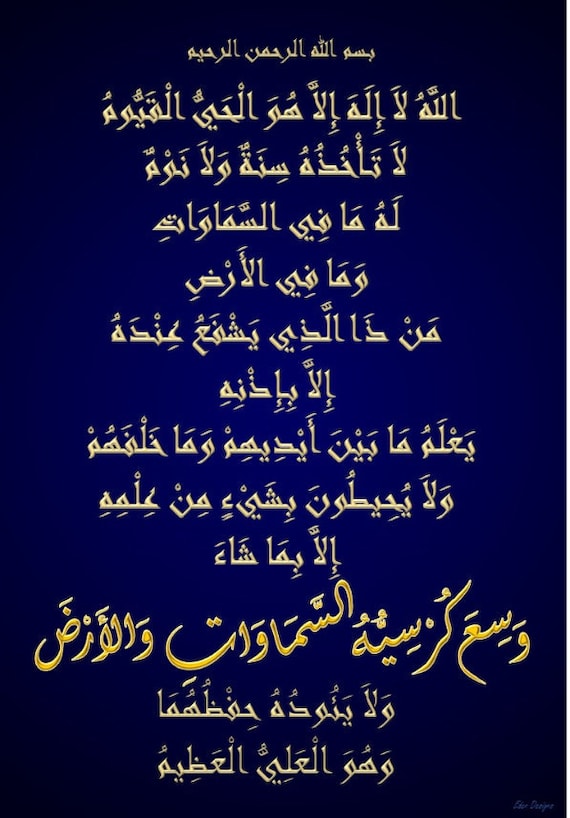 بسم الله الرحمن الرحيم
اللَّهُ لاَ إِلَهَ إِلاَّ هُوَ الْحَيُّ الْقَيُّومُ
لاَ تَأْخُذُهُ سِنَةٌ وَلاَ نَوْمٌ
لَهُ مَا فِي السَّمَاوَاتِ
وَمَا فِي الأَرْضِ
مَنْ ذَا الَّذِي يَشْفَعُ عِنْدَهُ
إِلاَّ بِإِذْنِهِ
يَعْلَمُ مَا بَيْنَ أَيْدِيهِمْ وَمَا خَلْفَهُمْ
وَلاَ يُحِيطُونَ بِشَيْءٍ مِنْ عِلْمِهِ
إِلاَّ بِمَا شَاءَ
وَسِعَ كُرْسِيُّهُ السَّمَاوَاتِ وَالأَرْضَ
وَلاَ يَئُودُهُ حِفْظُهُمَا
وَهُوَ الْعَلِيُّ الْعَظِيمُ
Designs